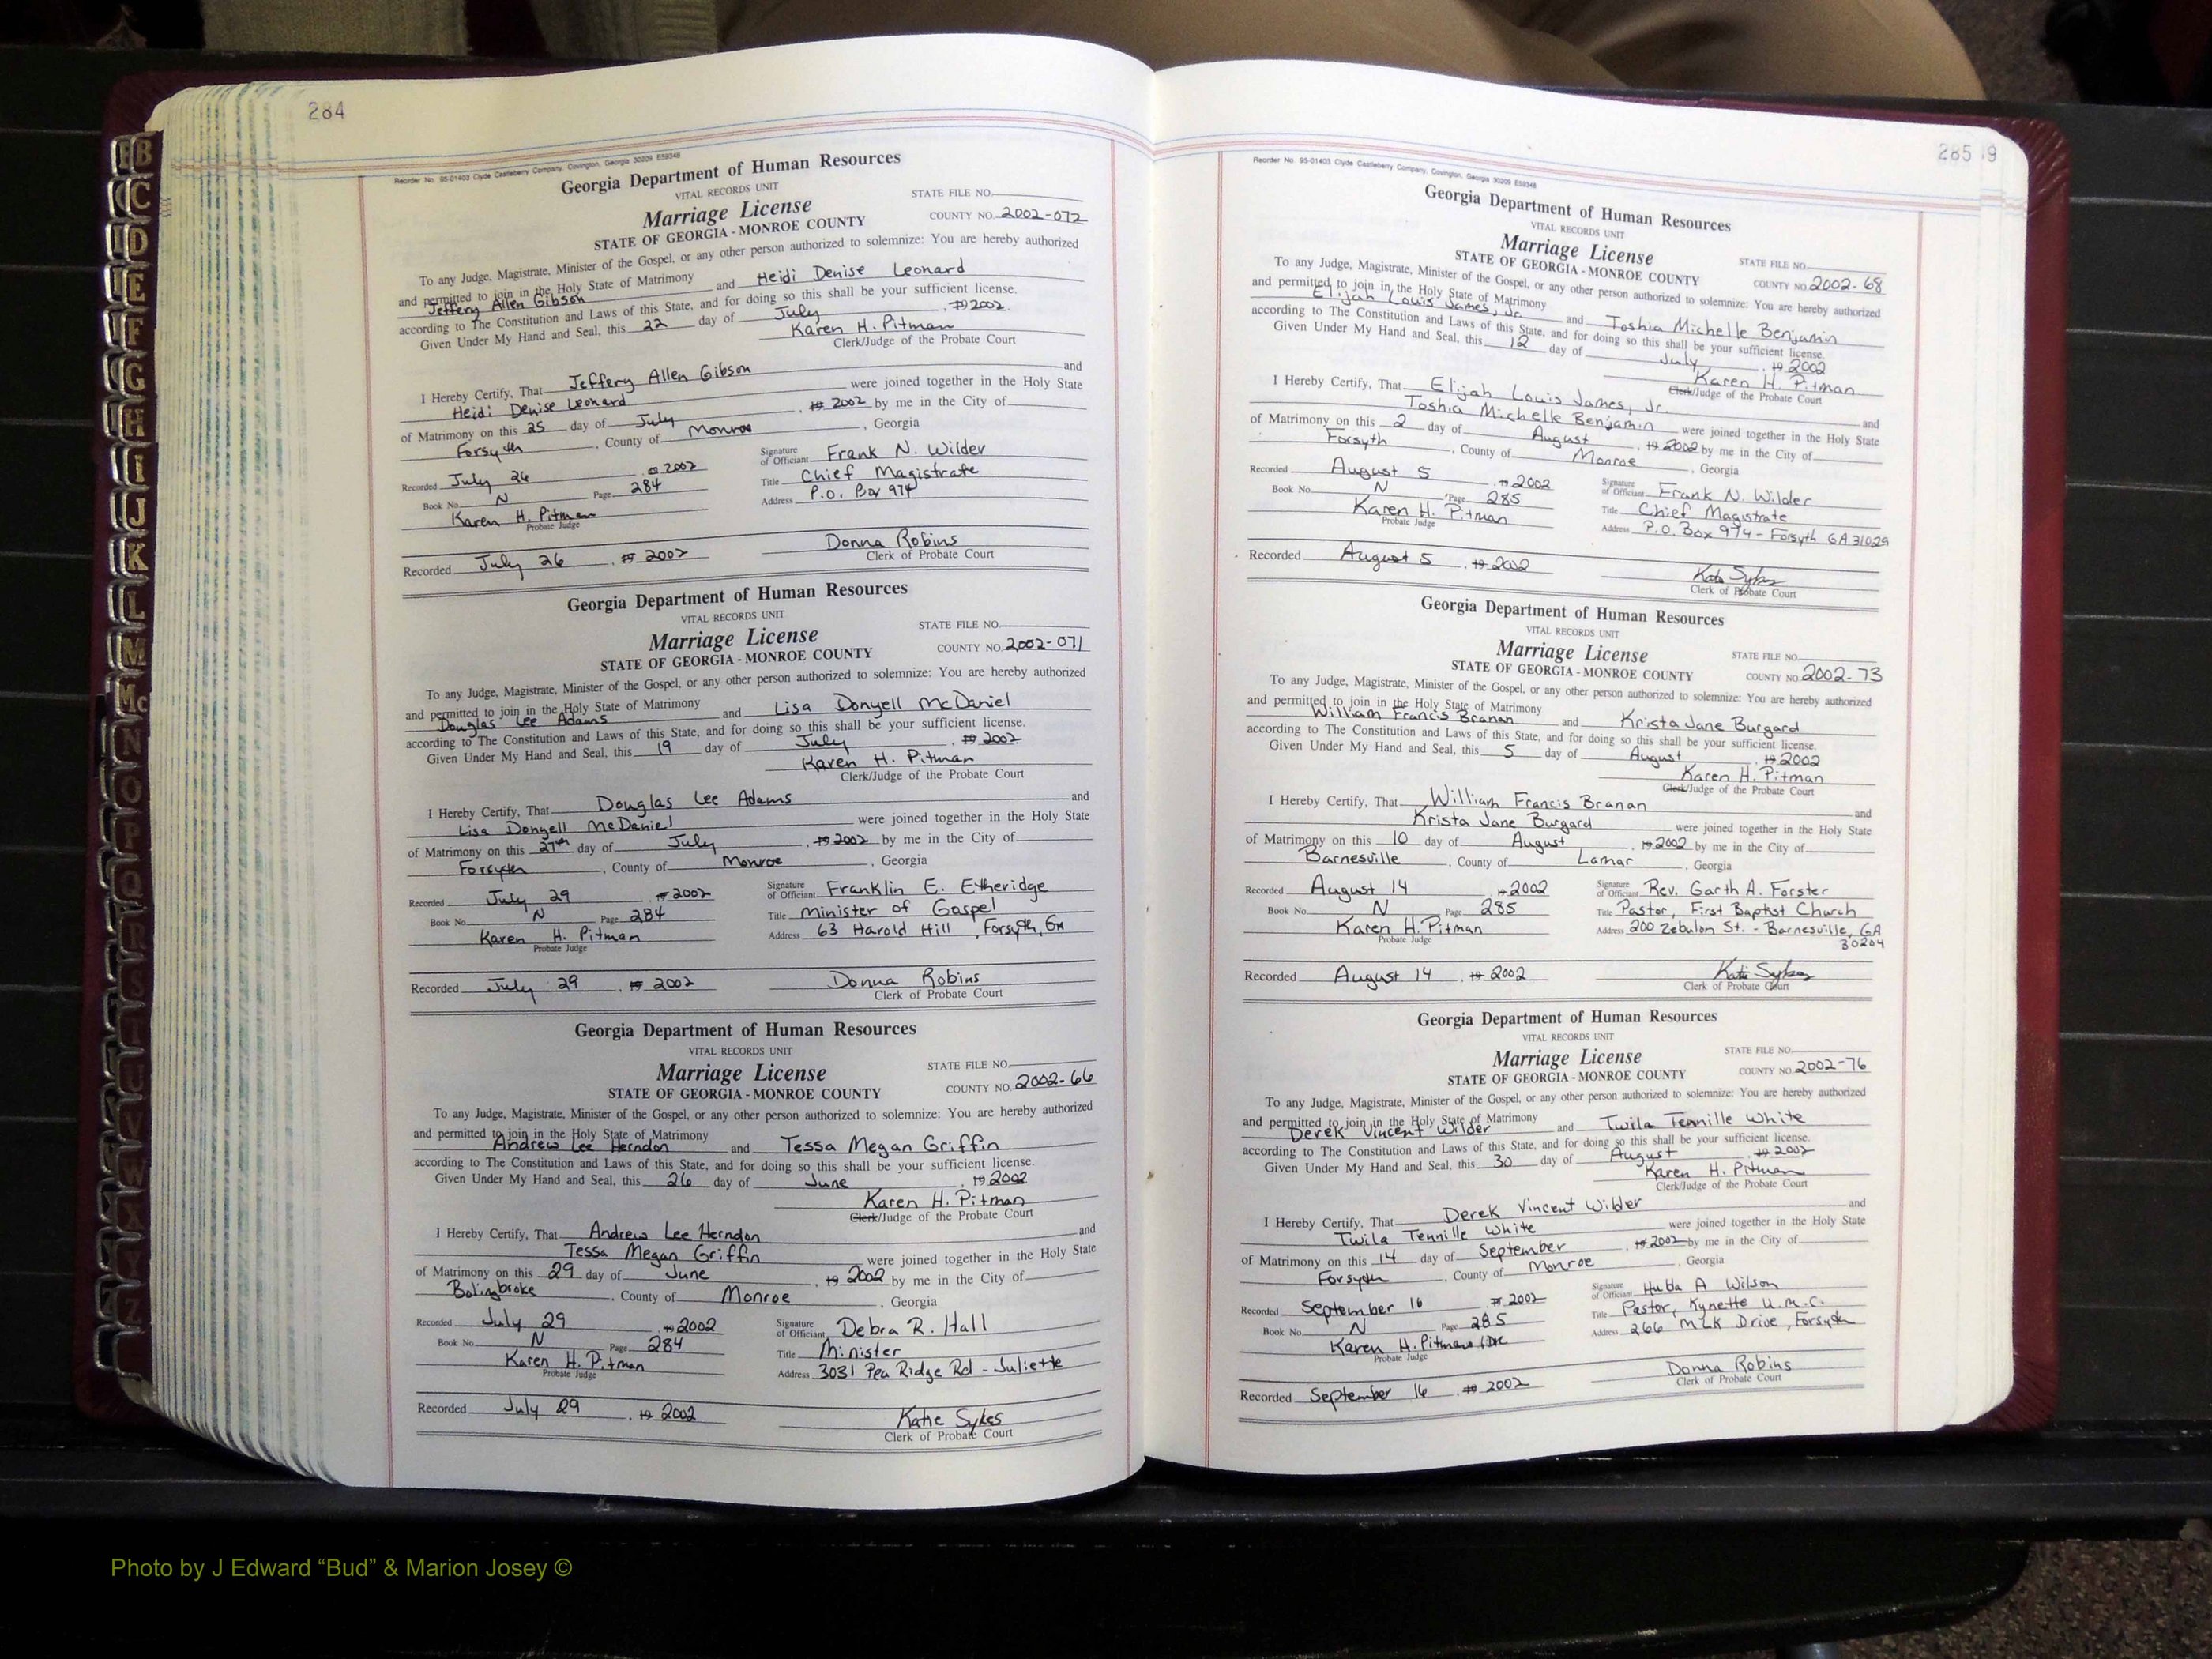 284
Reorder No. 95-01403 Clyde Castleberry Company, Covington, Georgia 30209 E59348
Georgia Department of Human Resources
VITAL RECORDS UNIT
STATE FILE NO.
Marriage License
COUNTY NO. 2002-072
STATE OF GEORGIA - MONROE COUNTY
To any Judge, Magistrate, Minister of the Gospel, or any other person authorized to solemnize: You are hereby authorized
and permitted to join in the Holy State of Matrimony
Jeffery Allen Gibson and Heidi Denise Leonard
according to The Constitution and Laws of this State, and for doing so this shall be your sufficient license.
Given Under My Hand and Seal, this 22 day of July, 19 2002.
Karen H. Pitman
Clerk/Judge of the Probate Court
I Hereby Certify, That Jeffery Allen Gibson and
Heidi Denise Leonard were joined together in the Holy State
of Matrimony on this 25 day of July, 19 2002 by me in the City of
Forsyth, County of Monroe, Georgia
Recorded July 26 2002
Book No. N Page 284
Karen H. Pitman
Probate Judge
Signature of Officiant Frank N. Wilder
Title Chief Magistrate
Address P.O. Box 974
Recorded July 26, 19 2002
Donna Robins
Clerk of Probate Court
Georgia Department of Human Resources
VITAL RECORDS UNIT
STATE FILE NO.
Marriage License
COUNTY NO. 2002-071
STATE OF GEORGIA - MONROE COUNTY
To any Judge, Magistrate, Minister of the Gospel, or any other person authorized to solemnize: You are hereby authorized
and permitted to join in the Holy State of Matrimony
Douglas Lee Adams and Lisa Donyell McDaniel
according to The Constitution and Laws of this State, and for doing so this shall be your sufficient license.
Given Under My Hand and Seal, this 19 day of July, 19 2002
Karen H. Pitman
Clerk/Judge of the Probate Court
I Hereby Certify, That Douglas Lee Adams and
Lisa Donyell McDaniel were joined together in the Holy State
of Matrimony on this 27th day of July, 19 2002 by me in the City of
Forsyth, County of Monroe, Georgia
Recorded July 29, 19 2002
Book No. N Page 284
Karen H. Pitman
Probate Judge
Signature of Officiant Franklin E. Etheridge
Title Minister of Gospel
Address 63 Harold Hill, Forsyth, Ga
Recorded July 29, 19 2002
Donna Robins
Clerk of Probate Court
Georgia Department of Human Resources
VITAL RECORDS UNIT
STATE FILE NO.
Marriage License
COUNTY NO. 2002-66
STATE OF GEORGIA - MONROE COUNTY
To any Judge, Magistrate, Minister of the Gospel, or any other person authorized to solemnize: You are hereby authorized
and permitted to join in the Holy State of Matrimony
Andrew Lee Herndon and Tessa Megan Griffin
according to The Constitution and Laws of this State, and for doing so this shall be your sufficient license.
Given Under My Hand and Seal, this 26 day of June, 19 2002
Karen H. Pitman
Clerk/Judge of the Probate Court
I Hereby Certify, That Andrew Lee Herndon and
Tessa Megan Griffin were joined together in the Holy State
of Matrimony on this 29 day of June, 19 2002 by me in the City of
Bolingbroke, County of Monroe, Georgia
Recorded July 29, 19 2002
Book No. N Page 284
Karen H. Pitman
Probate Judge
Signature of Officiant Debra R. Hall
Title Minister
Address 3031 Pea Ridge Rd - Juliette
Recorded July 29, 19 2002
Katie Sykes
Clerk of Probate Court
285 9
Reorder No. 95-01403 Clyde Castleberry Company, Covington, Georgia 30209 E59348
Georgia Department of Human Resources
VITAL RECORDS UNIT
Marriage License
STATE FILE NO.
STATE OF GEORGIA - MONROE COUNTY
COUNTY NO. 2002-68
To any Judge, Magistrate, Minister of the Gospel, or any other person authorized to solemnize: You are hereby authorized
and permitted to join in the Holy State of Matrimony
Elijah Louis James, Jr. and Toshia Michelle Benjamin
according to The Constitution and Laws of this State, and for doing so this shall be your sufficient license.
Given Under My Hand and Seal, this 12 day of July, 19 2002
Karen H. Pitman
Clerk/Judge of the Probate Court
I Hereby Certify, That Elijah Louis James, Jr. and
Toshia Michelle Benjamin were joined together in the Holy State
of Matrimony on this 2 day of August, 19 2002 by me in the City of
Forsyth, County of Monroe, Georgia
Recorded August 5, 19 2002
Book No. N Page 285
Karen H. Pitman
Probate Judge
Signature of Officiant Frank N. Wilder
Title Chief Magistrate
Address P.O. Box 974 - Forsyth GA 31029
Recorded August 5, 19 2002
Katie Sykes
Clerk of Probate Court
Georgia Department of Human Resources
VITAL RECORDS UNIT
Marriage License
STATE FILE NO.
STATE OF GEORGIA - MONROE COUNTY
COUNTY NO. 2002-73
To any Judge, Magistrate, Minister of the Gospel, or any other person authorized to solemnize: You are hereby authorized
and permitted to join in the Holy State of Matrimony
William Francis Branan and Krista Jane Burgard
according to The Constitution and Laws of this State, and for doing so this shall be your sufficient license.
Given Under My Hand and Seal, this 5 day of August, 19 2002
Karen H. Pitman
Clerk/Judge of the Probate Court
I Hereby Certify, That William Francis Branan and
Krista Jane Burgard were joined together in the Holy State
of Matrimony on this 10 day of August, 19 2002 by me in the City of
Barnesville, County of Lamar, Georgia
Recorded August 14, 19 2002
Book No. N Page 285
Karen H. Pitman
Probate Judge
Signature of Officiant Rev. Garth A. Forster
Title Pastor, First Baptist Church
Address 200 Zebulon St. - Barnesville, GA
30204
Recorded August 14, 19 2002
Katie Sykes
Clerk of Probate Court
Georgia Department of Human Resources
VITAL RECORDS UNIT
Marriage License
STATE FILE NO.
STATE OF GEORGIA - MONROE COUNTY
COUNTY NO. 2002-76
To any Judge, Magistrate, Minister of the Gospel, or any other person authorized to solemnize: You are hereby authorized
and permitted to join in the Holy State of Matrimony
Derek Vincent Wilder and Twila Tennille White
according to The Constitution and Laws of this State, and for doing so this shall be your sufficient license.
Given Under My Hand and Seal, this 30 day of August, 19 2002
Karen H. Pitman
Clerk/Judge of the Probate Court
I Hereby Certify, That Derek Vincent Wilder and
Twila Tennille White were joined together in the Holy State
of Matrimony on this 14 day of September, 19 2002 by me in the City of
Forsyth, County of Monroe, Georgia
Recorded September 16, 19 2002
Book No. N Page 285
Karen H. Pitman
Probate Judge
Signature of Officiant A Wilson
Title Pastor, Kynette U.M.C.
Address 266 MLK Drive, Forsyth
Recorded September 16, 19 2002
Donna Robins
Clerk of Probate Court
B
C
D
E
F
G
H
I
J
K
L
M
Mc
N
O
P
Q
R
S
T
U
V
W
X
Y
Z
Photo by J Edward “Bud” & Marion Josey ©